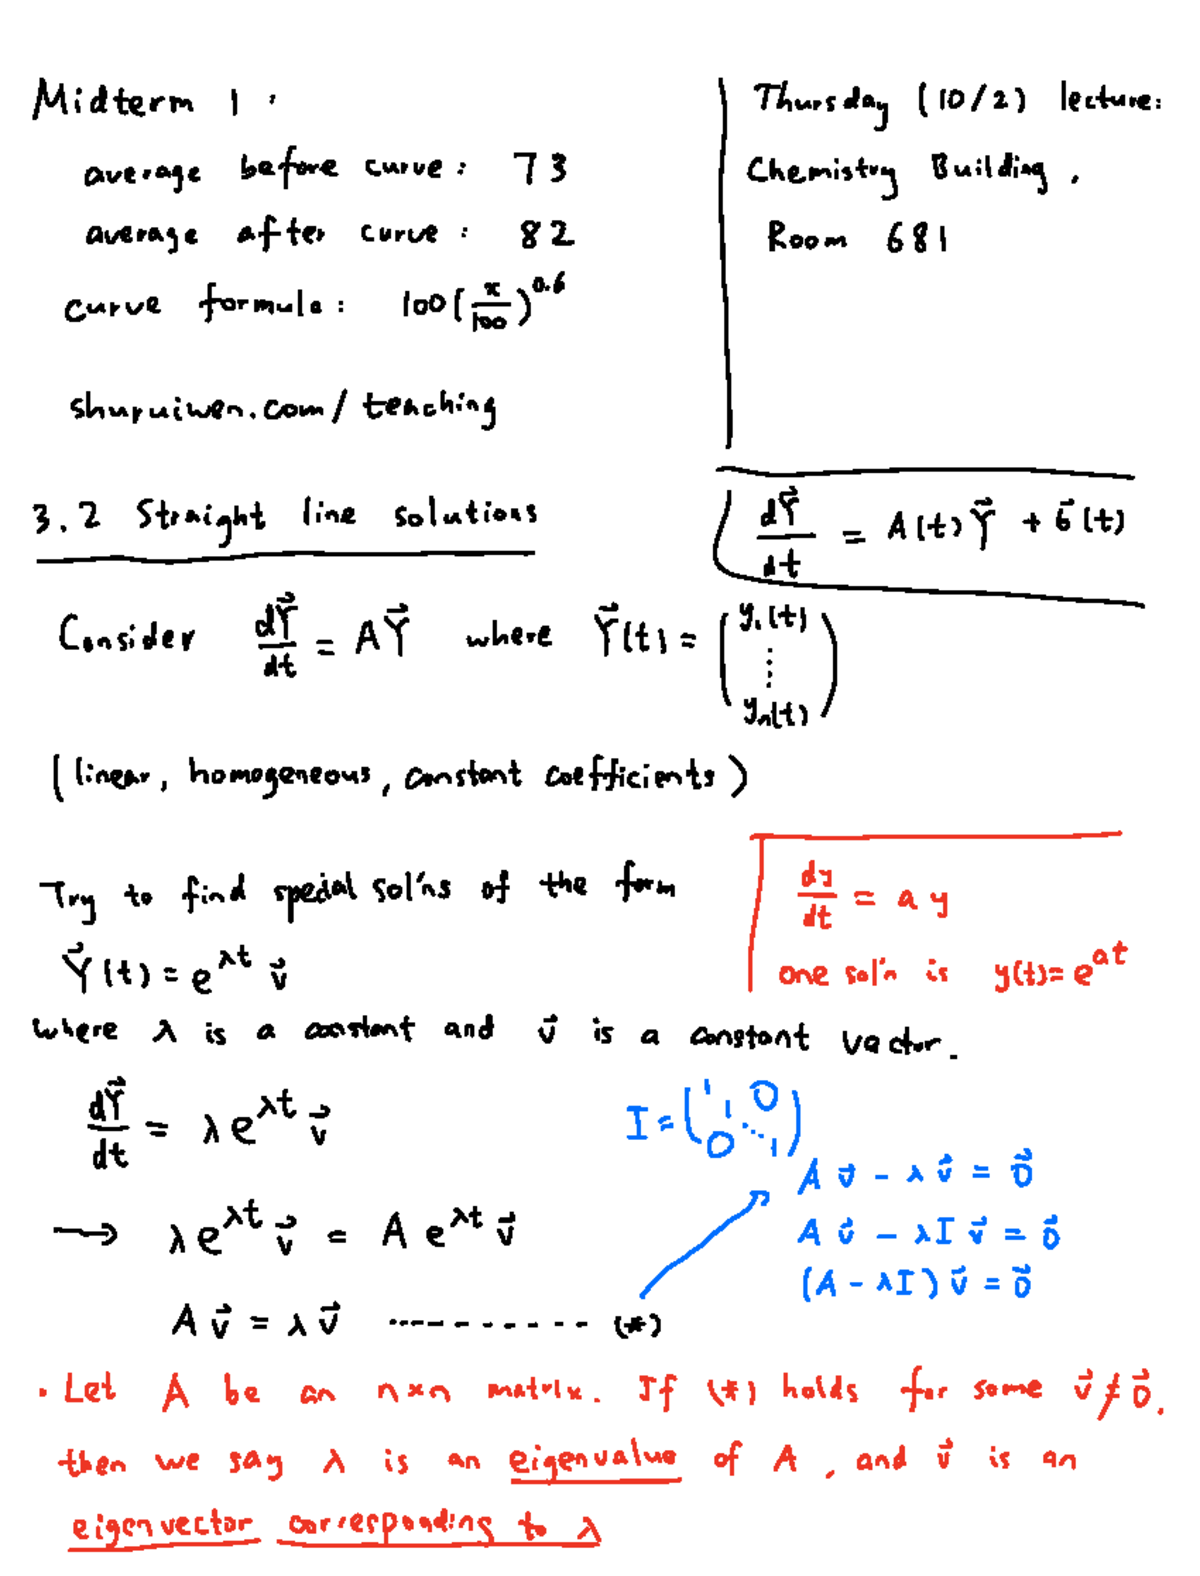 Midterm 1 :
average before curve : 73
average after curve : 82
curve formula : 100(x/100)^0.6
shuruiwen.com/teaching
Thursday (10/2) lecture:
Chemistry Building,
Room 681
3.2 Straight line solutions
dY⃗/dt = A(t)Y⃗ + b⃗(t)
Consider dY⃗/dt = AY⃗ where Y⃗(t) = (y₁(t) ⋮ yₙ(t))
(linear, homogeneous, constant coefficients)
Try to find special sol'ns of the form
Y⃗(t) = e^λt v⃗
dy/dt = a y
one sol'n is y(t)= e^at
where λ is a constant and v⃗ is a constant vector.
dY⃗/dt = λ e^λt v⃗
→ λ e^λt v⃗ = A e^λt v⃗
A v⃗ = λ v⃗ ----------- (*)
I = (1 1 0 0 ⋱ 1)
A v⃗ - λ v⃗ = 0⃗
A v⃗ - λI v⃗ = 0⃗
(A - λI) v⃗ = 0⃗
· Let A be an n×n matrix. If (*) holds for some v⃗ ≠ 0⃗,
then we say λ is an eigenvalue of A, and v⃗ is an
eigenvector corresponding to λ